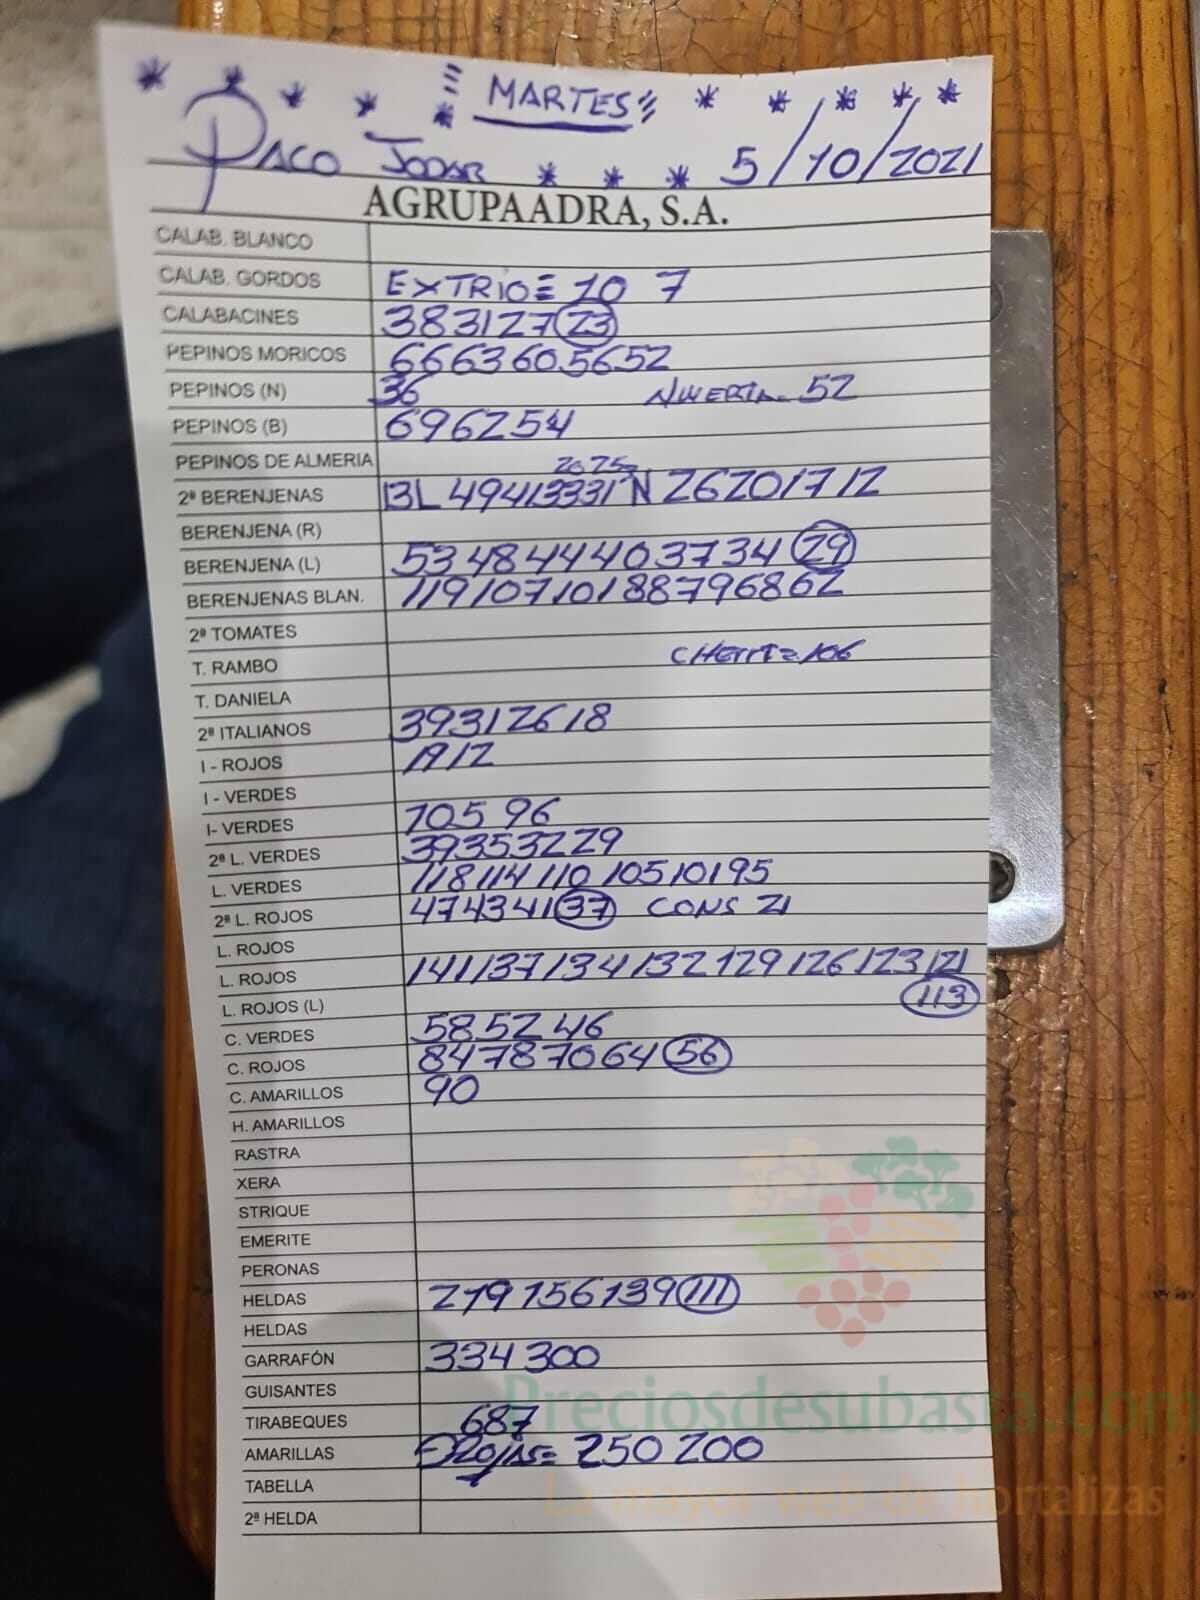 MARTES
PACO JODAR 5/10/2021
AGRUPAADRA, S.A.
CALAB. BLANCO
CALAB. GORDOS EXTRIO= 10 7
CALABACINES 38 31 27 23
PEPINOS MORICOS 66 63 60 56 52
PEPINOS (N) 36 52
PEPINOS (B) 69 62 54
PEPINOS DE ALMERIA 20 25
2ª BERENJENAS BL 49 41 33 31 N 26 20 17 12
BERENJENA (R)
BERENJENA (L) 53 48 44 40 37 34 29
BERENJENAS BLAN. 119 107 101 88 79 68 62
2ª TOMATES
T. RAMBO 106
T. DANIELA
2ª ITALIANOS 39 31 26 18
I - ROJOS 19 12
I - VERDES
I- VERDES 105 96
2ª L. VERDES 39 35 32 29
L. VERDES 118 114 110 105 101 95
2ª L. ROJOS 47 43 41 37 CONS 21
L. ROJOS
L. ROJOS 141 137 134 132 129 126 123 121
L. ROJOS (L) 113
C. VERDES 58 52 46
C. ROJOS 84 78 70 64 56
C. AMARILLOS 90
H. AMARILLOS
RASTRA
XERA
STRIQUE
EMERITE
PERONAS
HELDAS 219 156 139 111
HELDAS
GARRAFÓN 334 300
GUISANTES
TIRABEQUES 687
AMARILLAS ROJAS= 250 200
TABELLA
2ª HELDA
Preciosdesubasta.com
La mayor web de hortalizas